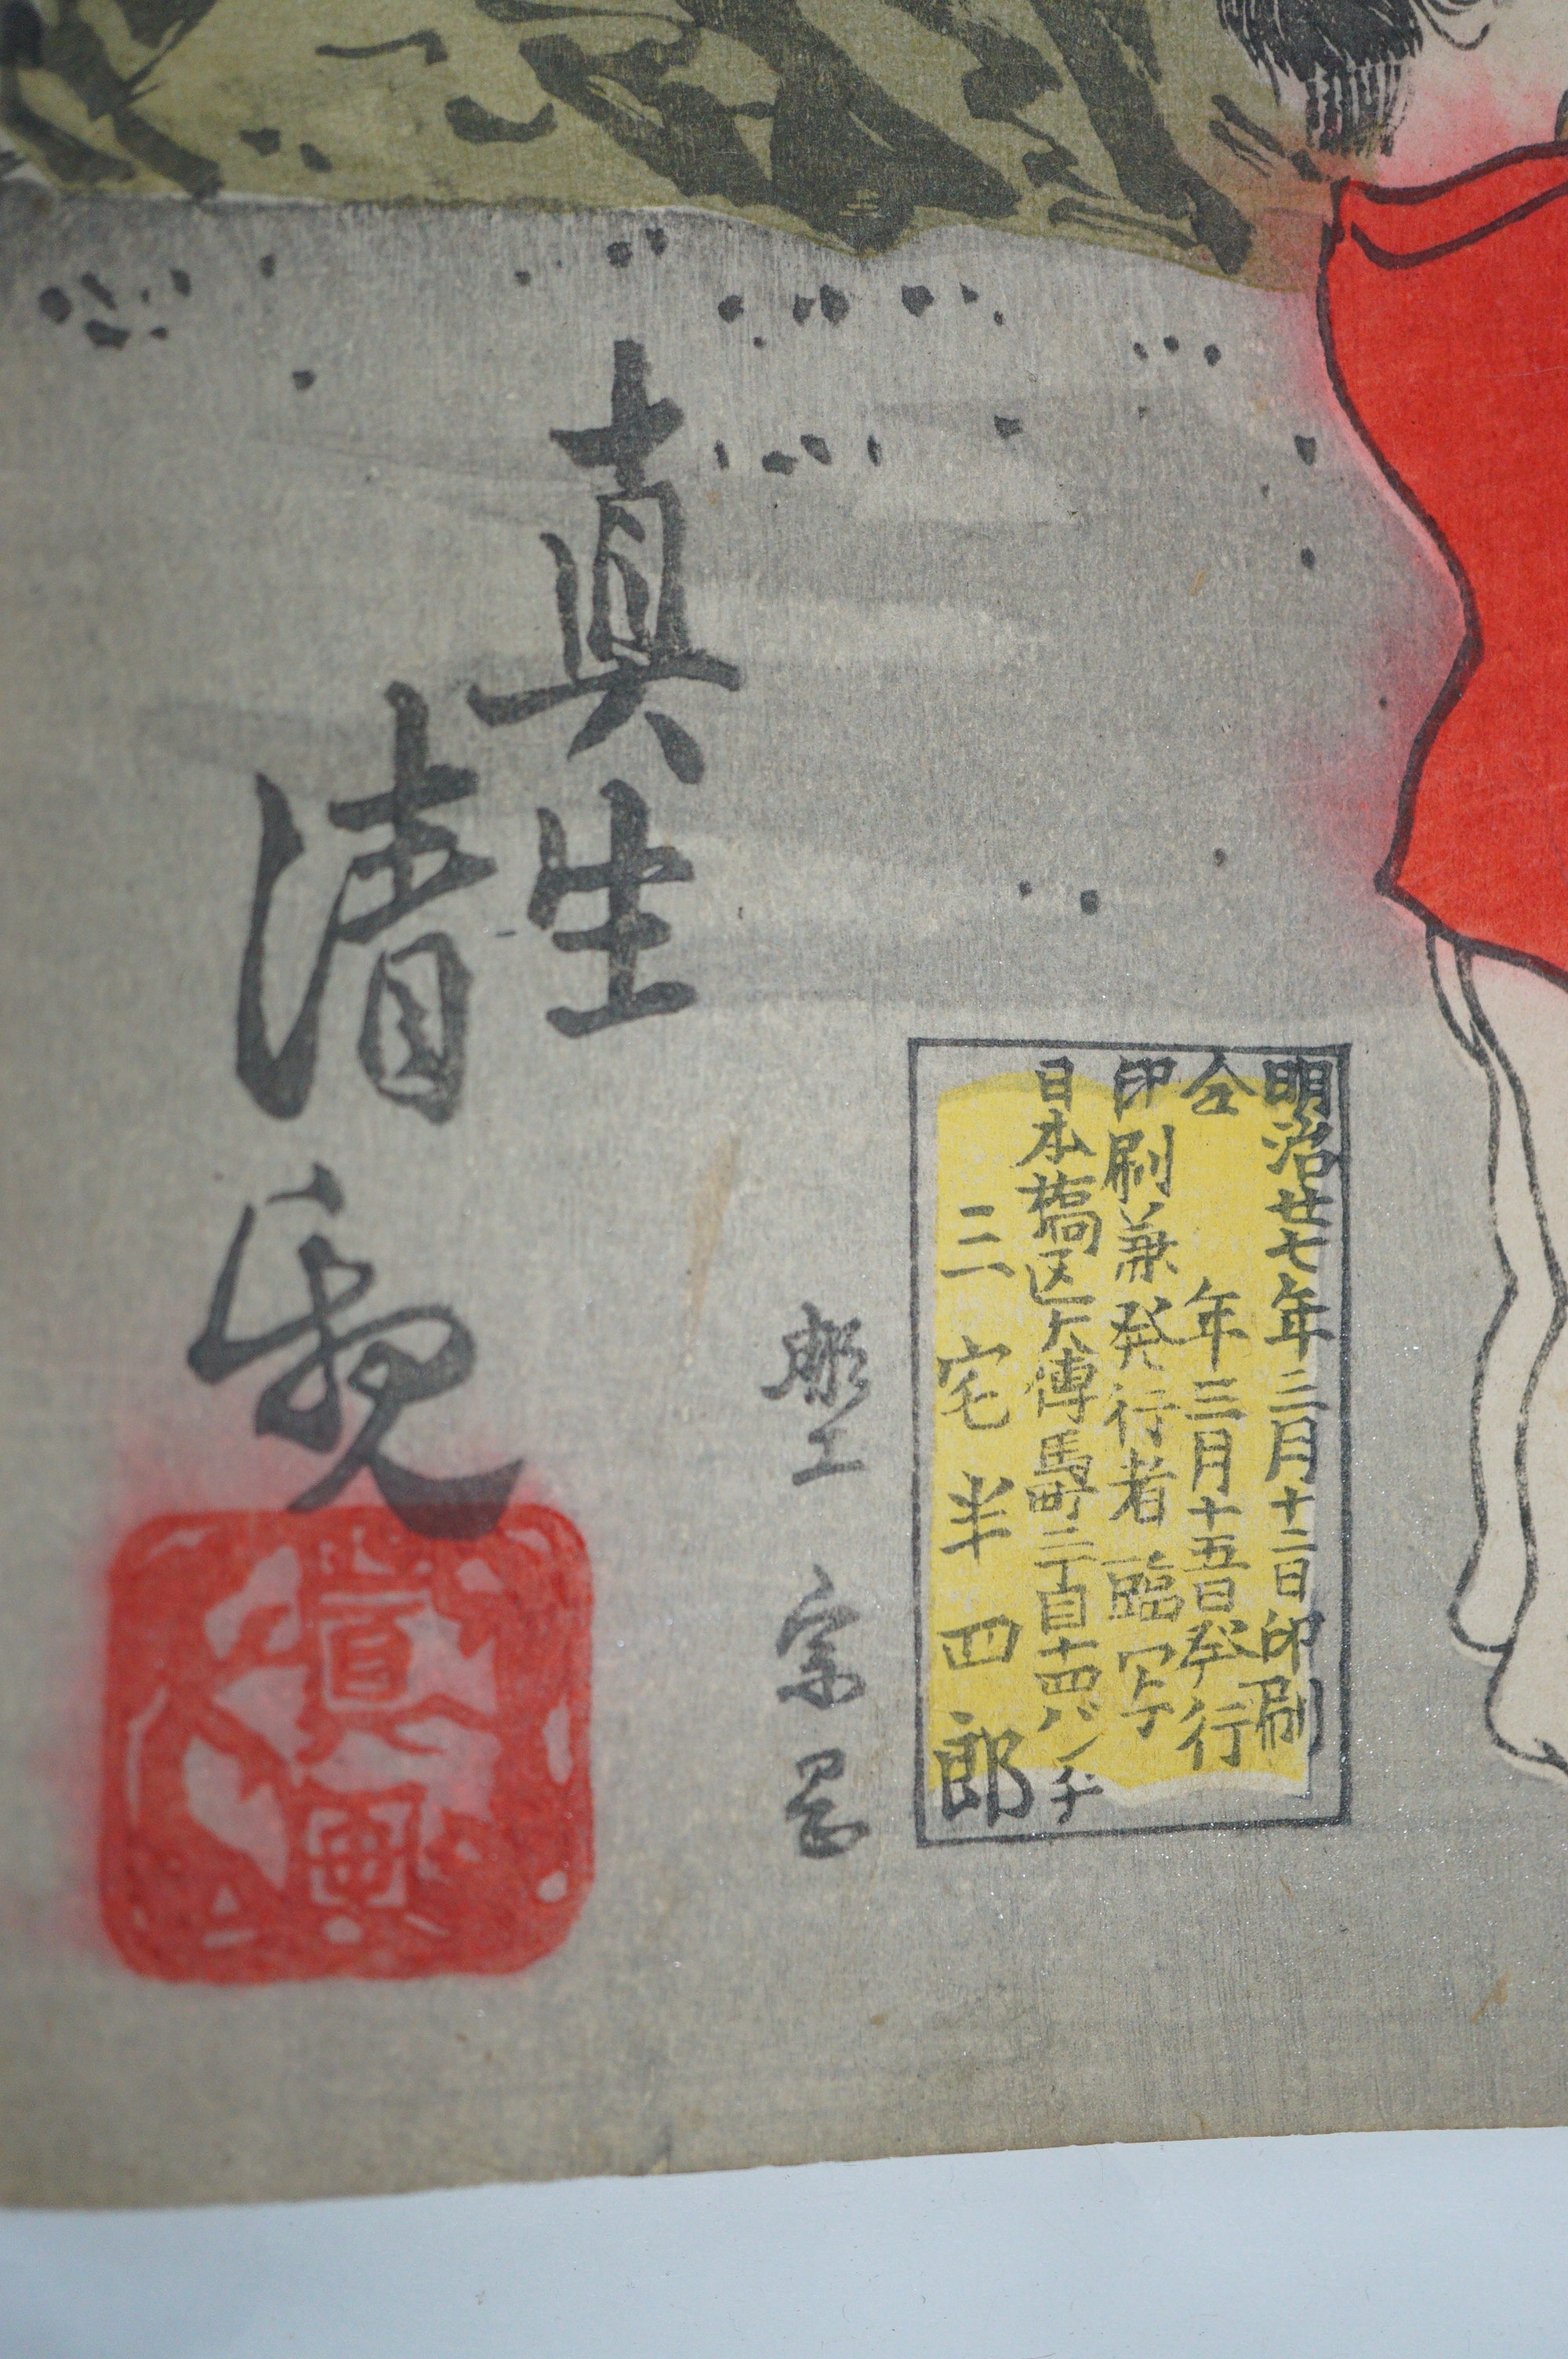 明治廿七年三月十二日印刷
仝 年三月十五日発行
印刷兼発行者 臨写
日本橋区大傳馬町二丁目十四バンチ
三宅半四郎
彫工 宗
真生
清親